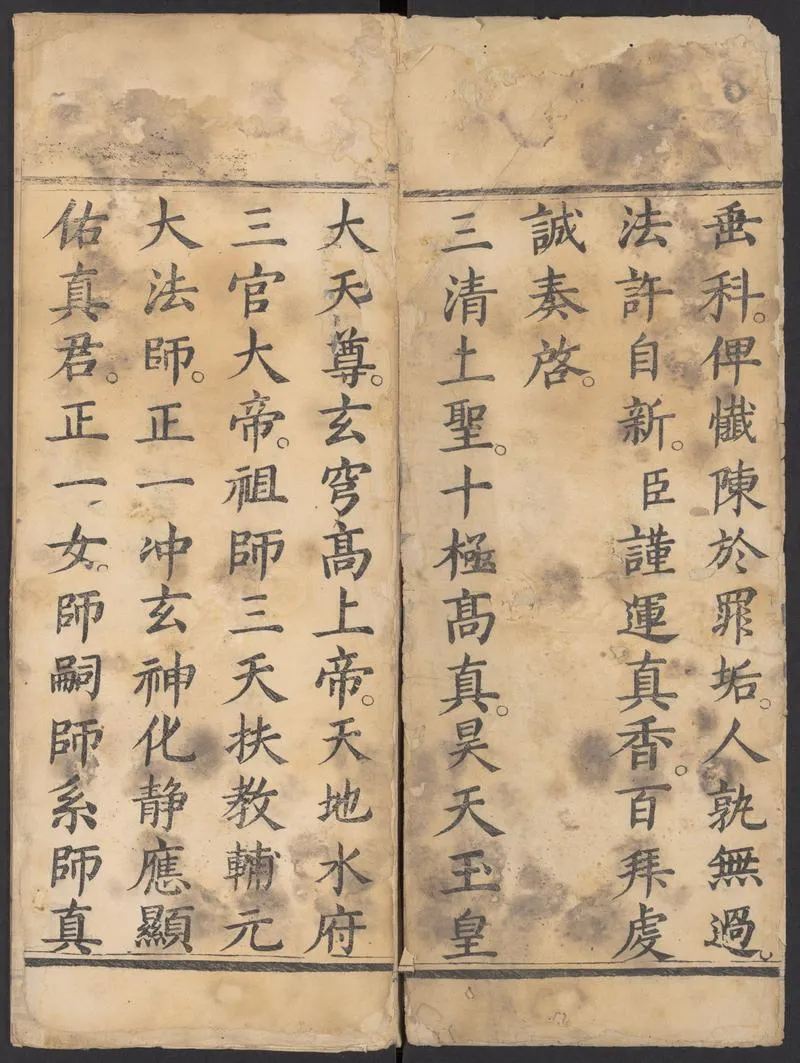 垂科。俾懺陳於罪垢。人孰無過。
法許自新。臣謹運真香。百拜虔
誠奏啓。
三清上聖。十極高真。昊天玉皇
大天尊。玄穹高上帝。天地水府
三官大帝。祖師三天扶教輔元
大法師。正一冲玄神化静應顯
佑真君。正一女。師嗣師系師真